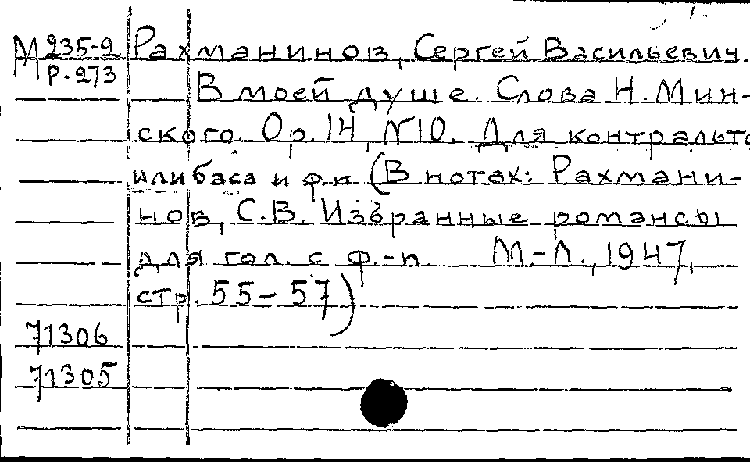 М 235-2 Рахманинов, Сергей Васильевич.
Р-273
В моей душе. Слова Н. Мин-
ского. Op. 14, N10. Для контральто
или баса и ф.п (В нотах: Рахмани-
нов, С.В. Избранные романсы
для гол. с ф.-п. М.-Л., 1947,
стр. 55-57)
71306
71305